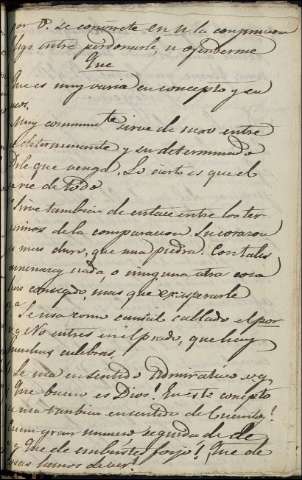 por O. se convierte en u la conjuncion
digo entre perdonarle, u ofenderme
Que
Que es muy varia en concepto y su
uso.
Muy comunmte sirve de nexo entre
determinante y su determinado
Dile que venga. Lo cierto es que el
sirve de todo
Sirve tambien de enlace entre los ter
minos de la comparacion Su corazon
es mas duro, que una piedra. Con tales
amenazas nada, o ninguna otra cosa
mas que exasperarle
Se usa como causal callado el por
No entres en el prado, que hay
muchas culebras!
Se usa en sentido Admirativo v.g.
Que bueno es Dios! En este concepto
se usa tambien en sentido de
gran numero seguida de de
Que de embustes forjó! Que de
cosas hemos de ver!